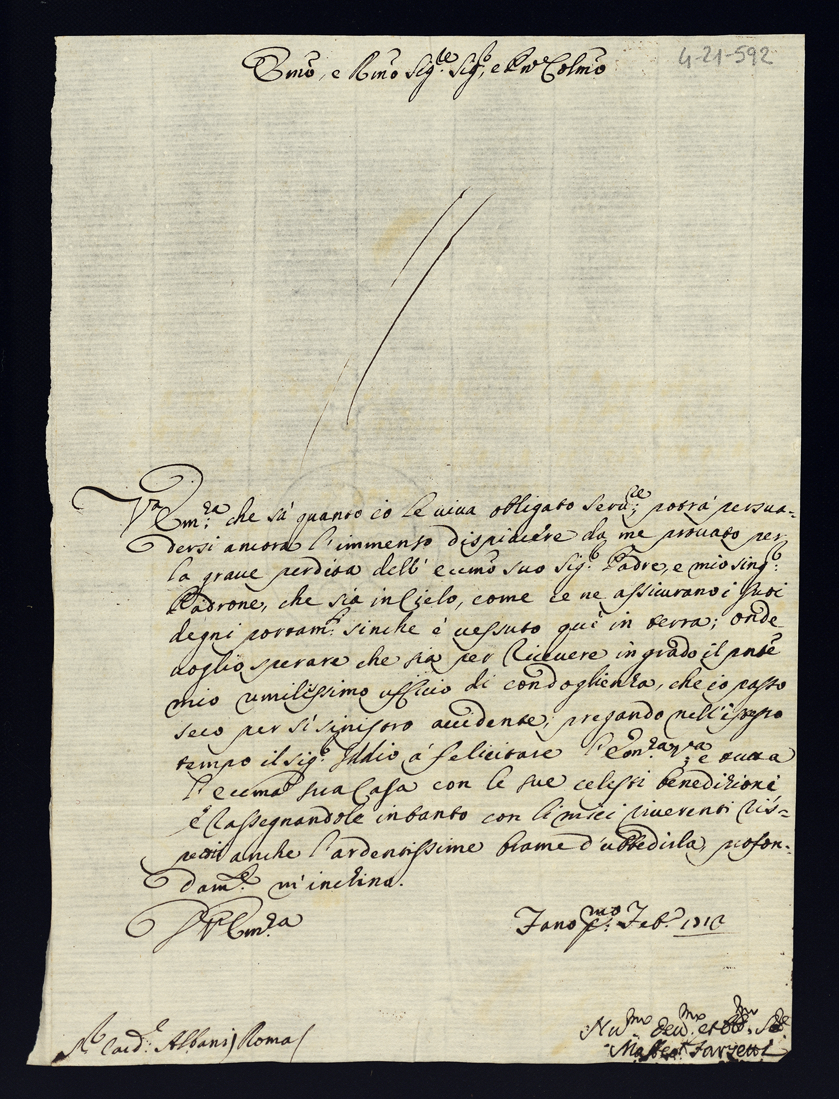 4-21-592
Emo, e Rmo Sigre Sigr, e Pne Colmo
V. Emza che sà quanto io le viva obligato servre; potrà persua=
dersi ancora l'immenso dispiacere da me provato per
la grave perdita dell' eccmo suo Sigr Padre, e mio singr
Padrone, che sia in Cielo, come ce ne assicurano i suoi
degni portamti sinche è vessuto quì in terra; onde
voglio sperare che sia per ricevere in grado il pnte
mio umilissimo ufficio di condoglienza, che io passo
seco per sì sinistro accidente; pregando nell'istesso
tempo il sigr Iddio à felicitare l'Emza Vra, e tutta
l'eccma sua Casa con le sue celesti benedizioni,
e rassegnandole intanto con li miei riverenti ris=
petti anche l'ardentissime brame d'ubbedirla, profon=
damte m'inchino.
Di V. Emza
Fano pmo Febr.
Sr Card. Albani) Roma(
Humo Devmo et obbmo Sre